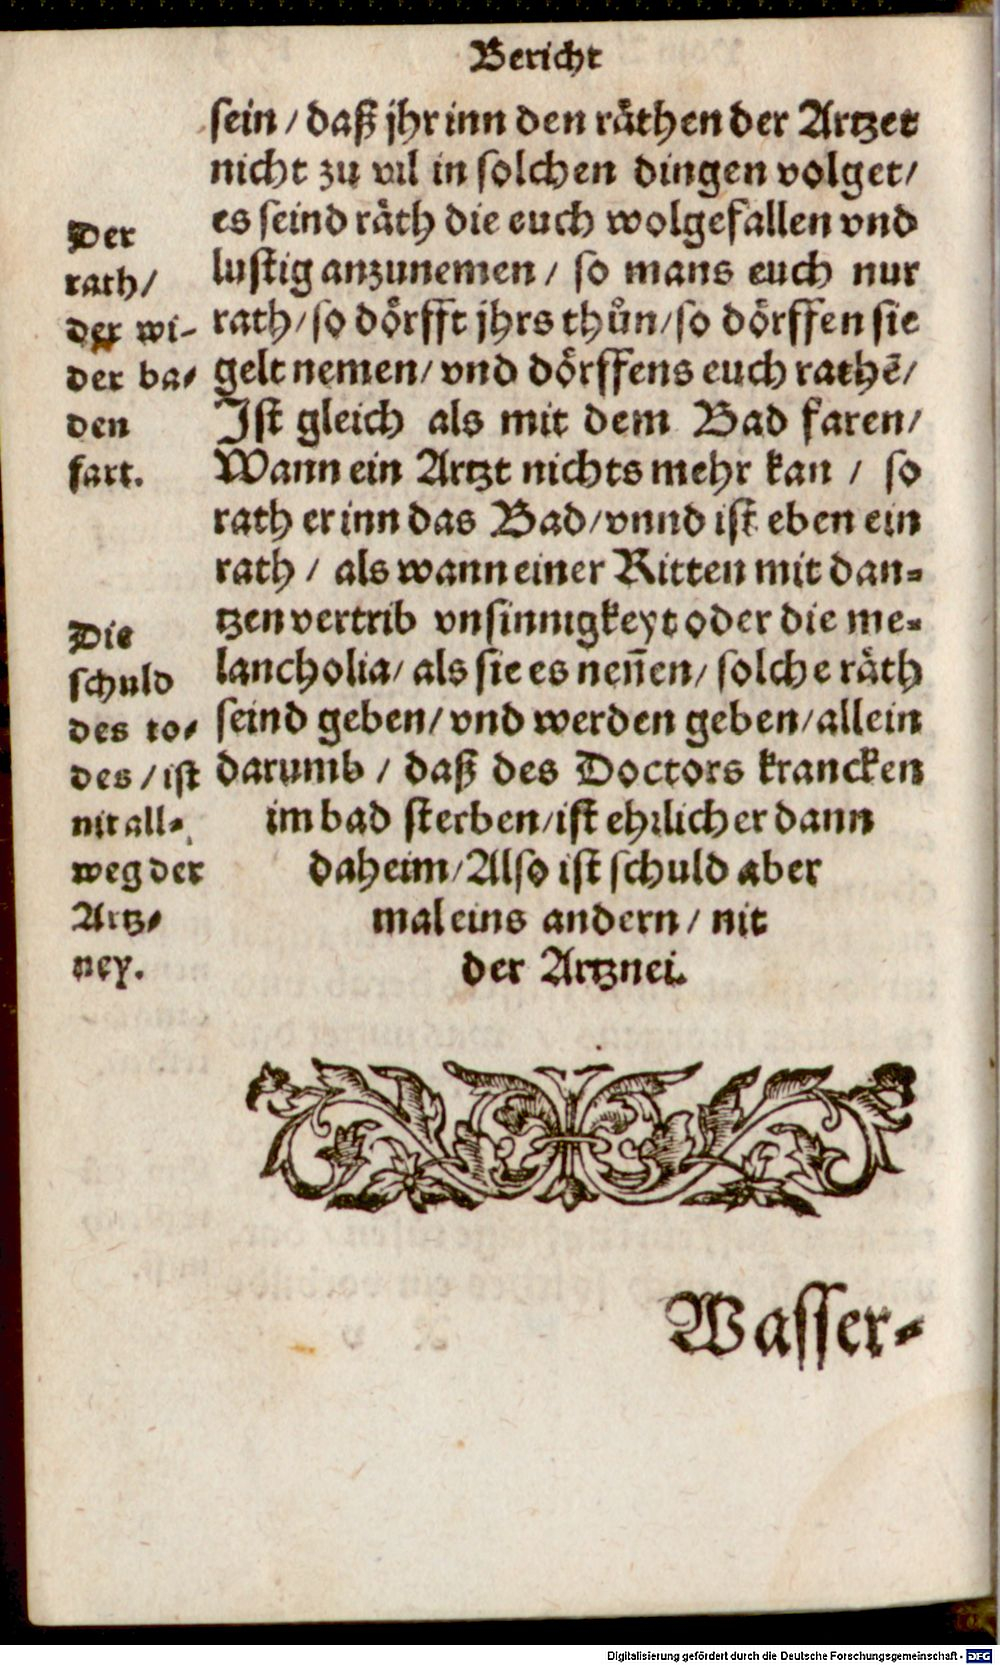 Bericht
sein / daß jhr inn den räthen der Artzet
nicht zu vil in solchen dingen volget /
es seind räth die euch wolgefallen vnd
lustig anzunemen / so mans euch nur
rath / so dörfft jhrs thůn / so dörffen sie
gelt nemen / vnd dörffens euch rathē /
Ist gleich als mit dem Bad faren /
Wann ein Artzt nichts mehr kan / so
rath er inn das Bad / vnnd ist eben ein
rath / als wann einer Ritten mit dan-
tzen vertrib vnsinnigkeyt oder die me-
lancholia / als sie es nen̄en / solche räth
seind geben / vnd werden geben / allein
darumb / daß des Doctors krancken
im bad sterben / ist ehrlicher dann
daheim / Also ist schuld aber
mal eins andern / nit
der Artznei.
Der
rath /
der wi-
der ba-
den
fart.
Die
schuld
des to-
des / ist
nit all-
weg der
Artz-
ney.
Wasser-
Digitalisierung gefördert durch die Deutsche Forschungsgemeinschaft - DFG